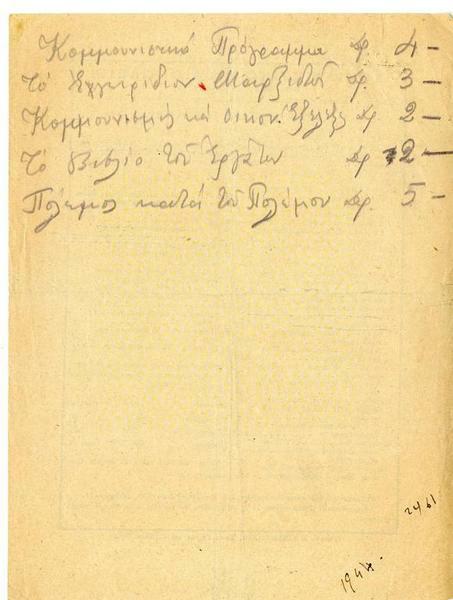 Κομμουνιστικό Πρόγραμμα Δρ. 4 –
Τό Εγχειρίδιον Μαρξιστού Δρ. 3 –
Κομμουνισμός καί οικον. Εξέλιξις Δρ 2 –
Τό Βιβλίο τού Εργάτου Δρ 2 –
Πόλεμος κατά τού Πολέμου Δρ. 5 –
2461
194